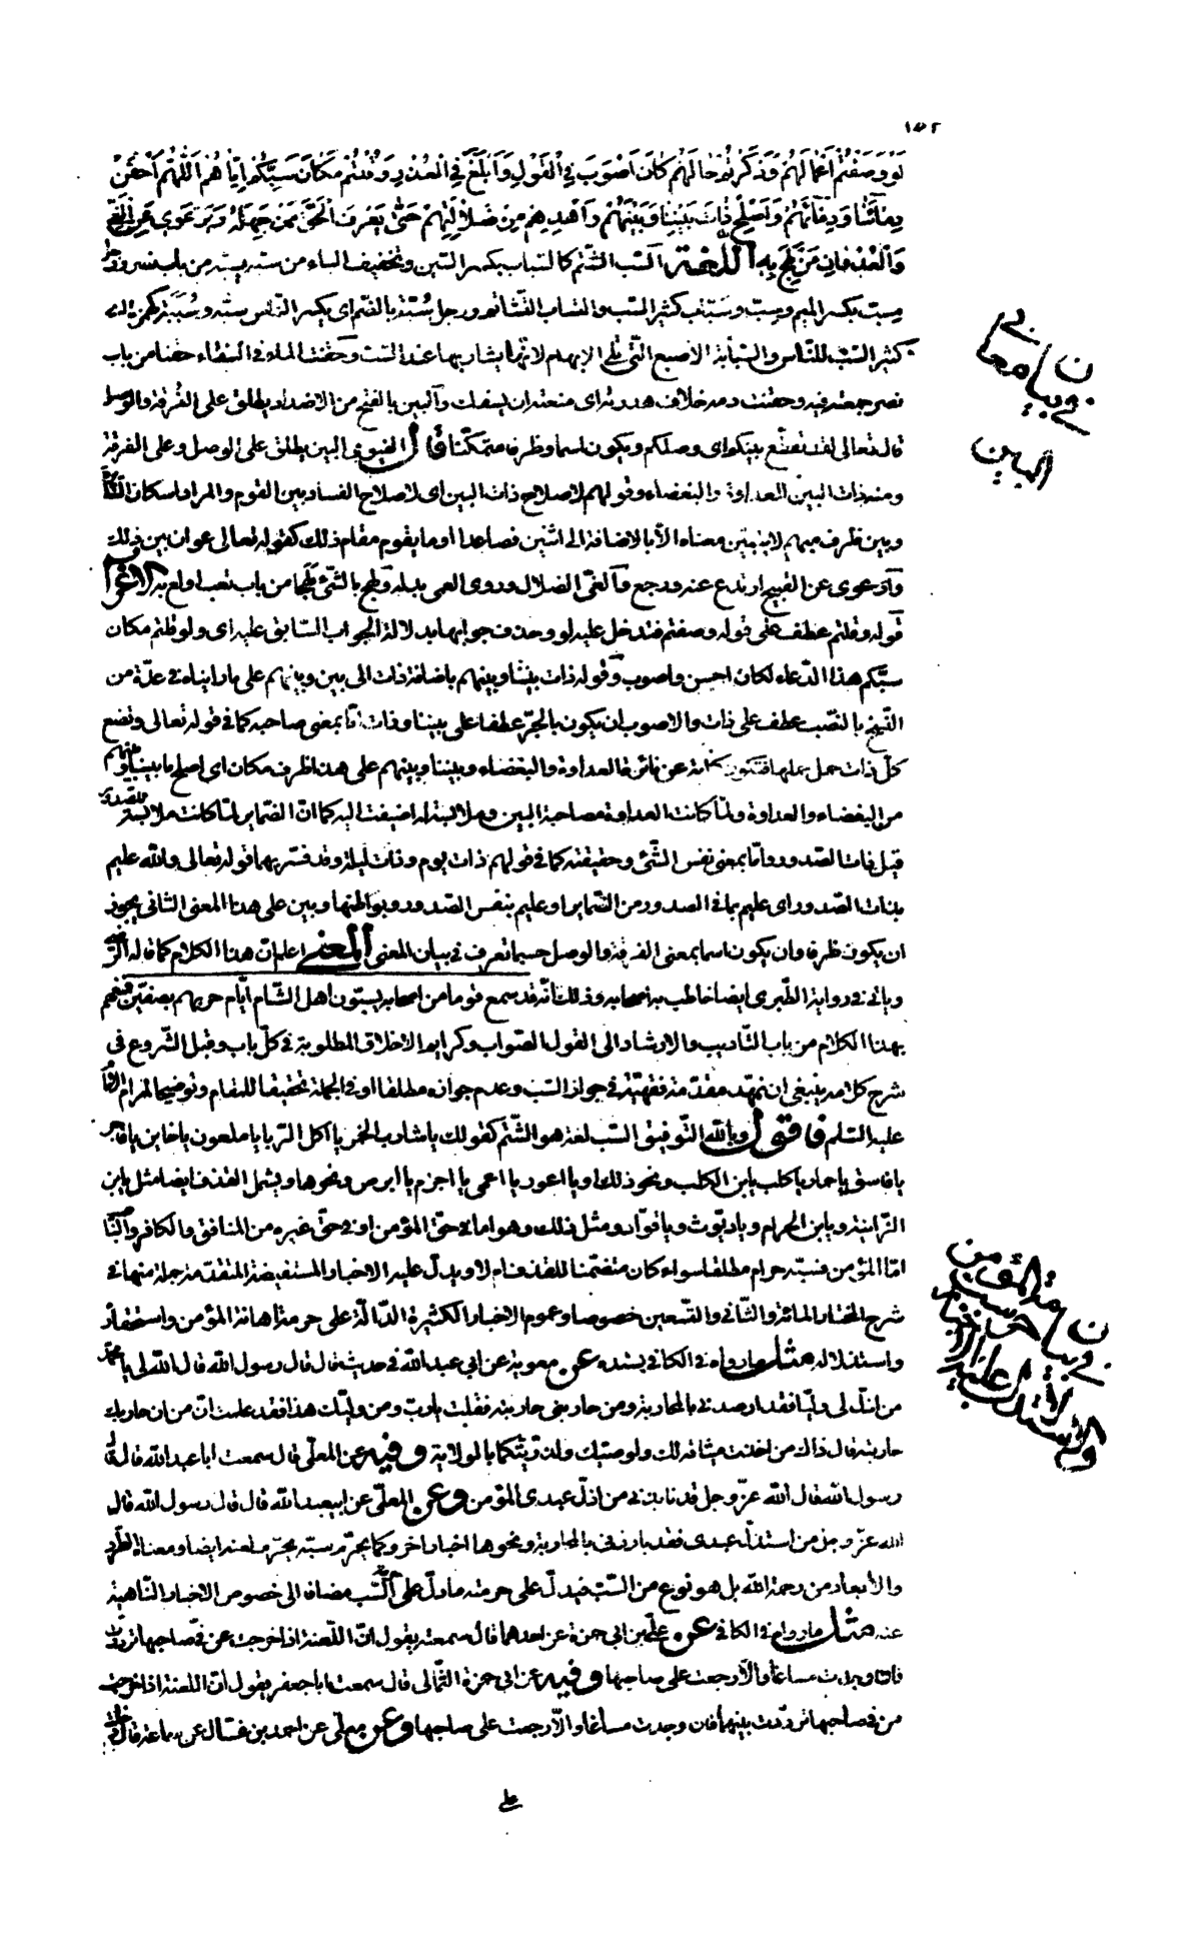 ١٥٢
لَوْ وَصَفْتُمْ أَعْمَالَهُمْ وَذَكَرْتُمْ حَالَهُمْ كَانَ أَصْوَبَ فِي الْقَوْلِ وَأَبْلَغَ فِي الْعُذْرِ وَقُلْتُمْ مَكَانَ سَبِّكُمْ إِيَّاهُمْ اَللّٰهُمَّ احْقِنْ
دِمَائَنَا وَدِمَائَهُمْ وَأَصْلِحْ ذَاتَ بَيْنِنَا وَبَيْنِهِمْ وَاهْدِهِمْ مِنْ ضَلَالَتِهِمْ حَتَّى يَعْرِفَ الْحَقَّ مَنْ جَهِلَهُ وَيَرْعَوِيَ عَنِ الْغَيِّ
وَالْعُدْوَانِ مَنْ لَهِجَ بِهِ اللغة السّبّ الشّتم كالسّباب بكسر السّين وتخفيف الباء من سبّه يسبّه من باب نصر
مسبّ بكسر الميم وسبّ وسبّب كثير السّب والسّاب التّشاتم ورجل سُبّة بالضّم اى يكسر النّاس سبّه وسُبَبَة كهمزة اى
كثير السّبّ للنّاس والسّبّابة الاصبع الّتى تلى الابهام لانّها يشار بها عند السّب وحقنت الماء فى السّقاء حقنا من باب
نصر جمعته فيه وحقنت دمه خلاف هدرته اى منعته ان يسفك والبين بالفتح من الاضداد يطلق على الفُرقة والوصل
قال تعالى لقد تقطّع بينكم اى وصلكم ويكون اسما وظرفا متمكّنا قال الفيومى البين يطلق على الوصل وعلى الفرقة
ومنه ذات البين للعداوة والبغضاء وقولهم لاصلاح ذات البين اى لاصلاح الفساد بين القوم والمراد اسكان النائرة
وبين ظرف مبهم لا يتبيّن معناه الّا بالاضافة الى اثنين فصاعدا او ما يقوم مقام ذلك كقوله تعالى عوان بين ذلك
وارعوى عن القبيح ارتدع عنه ورجع والغىّ الضلال وروى العمى بدله ولهج بالشّئ لهجا من باب تعب اولع به الاعراب
قوله وقلتم عطف على قوله وصفتم فتدخل عليه لو وحذف جوابها بدلالة الجواب السّابق عليه اى ولو قلتم مكان
سبّكم هذا الدّعاء لكان احسن واصوب وقوله ذات بيننا وبينهم باضافة ذات الى بين وبينهم على ما رايناه فى عدّة من
النّسخ بالنّصب عطف على ذات والاصوب ان يكون بالجرّ عطفا على بيننا وذات امّا بمعنى صاحبه كما فى قوله تعالى وتضع
كلّ ذات حمل حملها فتكون كناية عن نائرة العداوة والبغضاء وبيننا وبينهم على هذا ظرف مكان اى اصلح ما بيننا وبينهم
من البغضاء والعداوة ولمّا كانت العداوة مصاحبة للبين وملابسة له اضيفت اليه كما انّ الضّماير لمّا كانت ملابسة للصّدور
قيل ذات الصّدور وامّا بمعنى نفس الشّئ وحقيقته كما فى قولهم ذات يوم وذات ليلة وقد فسّر بهما قوله تعالى والله عليم
بذات الصّدور اى عليم بما فى الصدور من الضّماير او عليم بنفس الصّدور وبواطنها وبين على هذا المعنى الثانى يجوز
ان يكون ظرفا وان يكون اسما بمعنى الفرقة والوصل حسبما تعرف فى بيان المعنى المعنى اعلم انّ هذا الكلام كما قاله الرّضى
ويأتى فى رواية الطّبرى ايضا خاطب به اصحابه وذلك انّه قد سمع قوما من اصحابه يسبّون اهل الشّام ايّام حربهم بصفّين فمنعهم
بهذا الكلام من باب التّاديب والارشاد الى القول الصّواب وكرايم الاخلاق المطلوبة فى كلّ باب وقبل الشّروع فى
شرح كلامه ينبغى ان نمهّد مقدّمة فقهيّة فى جواز السّب وعدم جوازه مطلقا او فى الجملة تحقيقا للمقام وتوضيحا لمرام الامام
عليه السّلم فاقول وبالله التّوفيق السّب لغة هو الشّتم كقولك يا شارب الخمر يا اكل الرّبا يا ملعون يا خاين يا فاجر
يا فاسق يا حمار يا كلب يابن الكلب ونحو ذلك او يا اعور يا اعمى يا اجزم يا ابرص ونحوها ويشمل القذف ايضا مثل يابن
الزّانية ويابن الحرام ويا ديّوث ويا قوّاد ومثل ذلك وهو اما فى حقّ المؤمن او فى حقّ غيره من المنافق والكافر والنّاصب
امّا المؤمن فسبّه حرام مطلقا سواء كان متضمّنا للقذف ام لا ويدلّ عليه الاخبار المستفيضة المتقدّمة جملة منها فى
شرح المختار المائة والثّانى والتّسعين خصوصا وعموم الاخبار الكثيرة الدّالّة على حرمة اهانة المؤمن واستحقاره
واستذلاله مثل ما رواه فى الكافى بسنده عن معوية عن ابى عبدالله فى حديث قال قال رسول الله قال الله لى يا محمّد
من اذلّ لى وليّا فقد ارصد لى بالمحاربة ومن حاربنى حاربته فقلت يا ربّ ومن وليّك هذا فقد علمت انّ من حاربك
حاربته قال ذاك من اخذت ميثاقه لك ولوصيّك ولذرّيّتكما بالولاية وفيه عن المعلّى قال سمعت ابا عبدالله قال قال
رسول الله قال الله عزّ وجل قد نابذنى من اذلّ عبدى المؤمن وعن المعلّى عن ابيعبدالله قال قال رسول الله قال
الله عزّ وجل من استذلّ عبدى فقد بارزنى بالمحاربة ونحوها اخبار اخر وكما يحرم سبّه يحرم لعنه ايضا ومعناه الطّرد
والابعاد من رحمة الله بل هو نوع من السّب فيدلّ على حرمته ما دلّ على السّب مضافا الى خصوص الاخبار النّاهية
عنه مثل ما رواه فى الكافى عن علىّ بن ابى حمزة عن احدهما قال سمعته يقول انّ اللّعنة اذا خرجت من فى صاحبها تردّدت
فان وجدت مساغا والّا رجعت على صاحبها وفيه عن ابى حمزة الثّمالى قال سمعت ابا جعفر يقول انّ اللعنة اذا خرجت
من فى صاحبها تردّدت بينهما فان وجدت مساغا والّا رجعت على صاحبها وعن علىّ عن احمد بن فضّال عن سماعة قال دخلت
على
فى بيان معانى
البين
فى بيان حرمة سبّ المؤمن
والاستدلال عليه بالاخبار